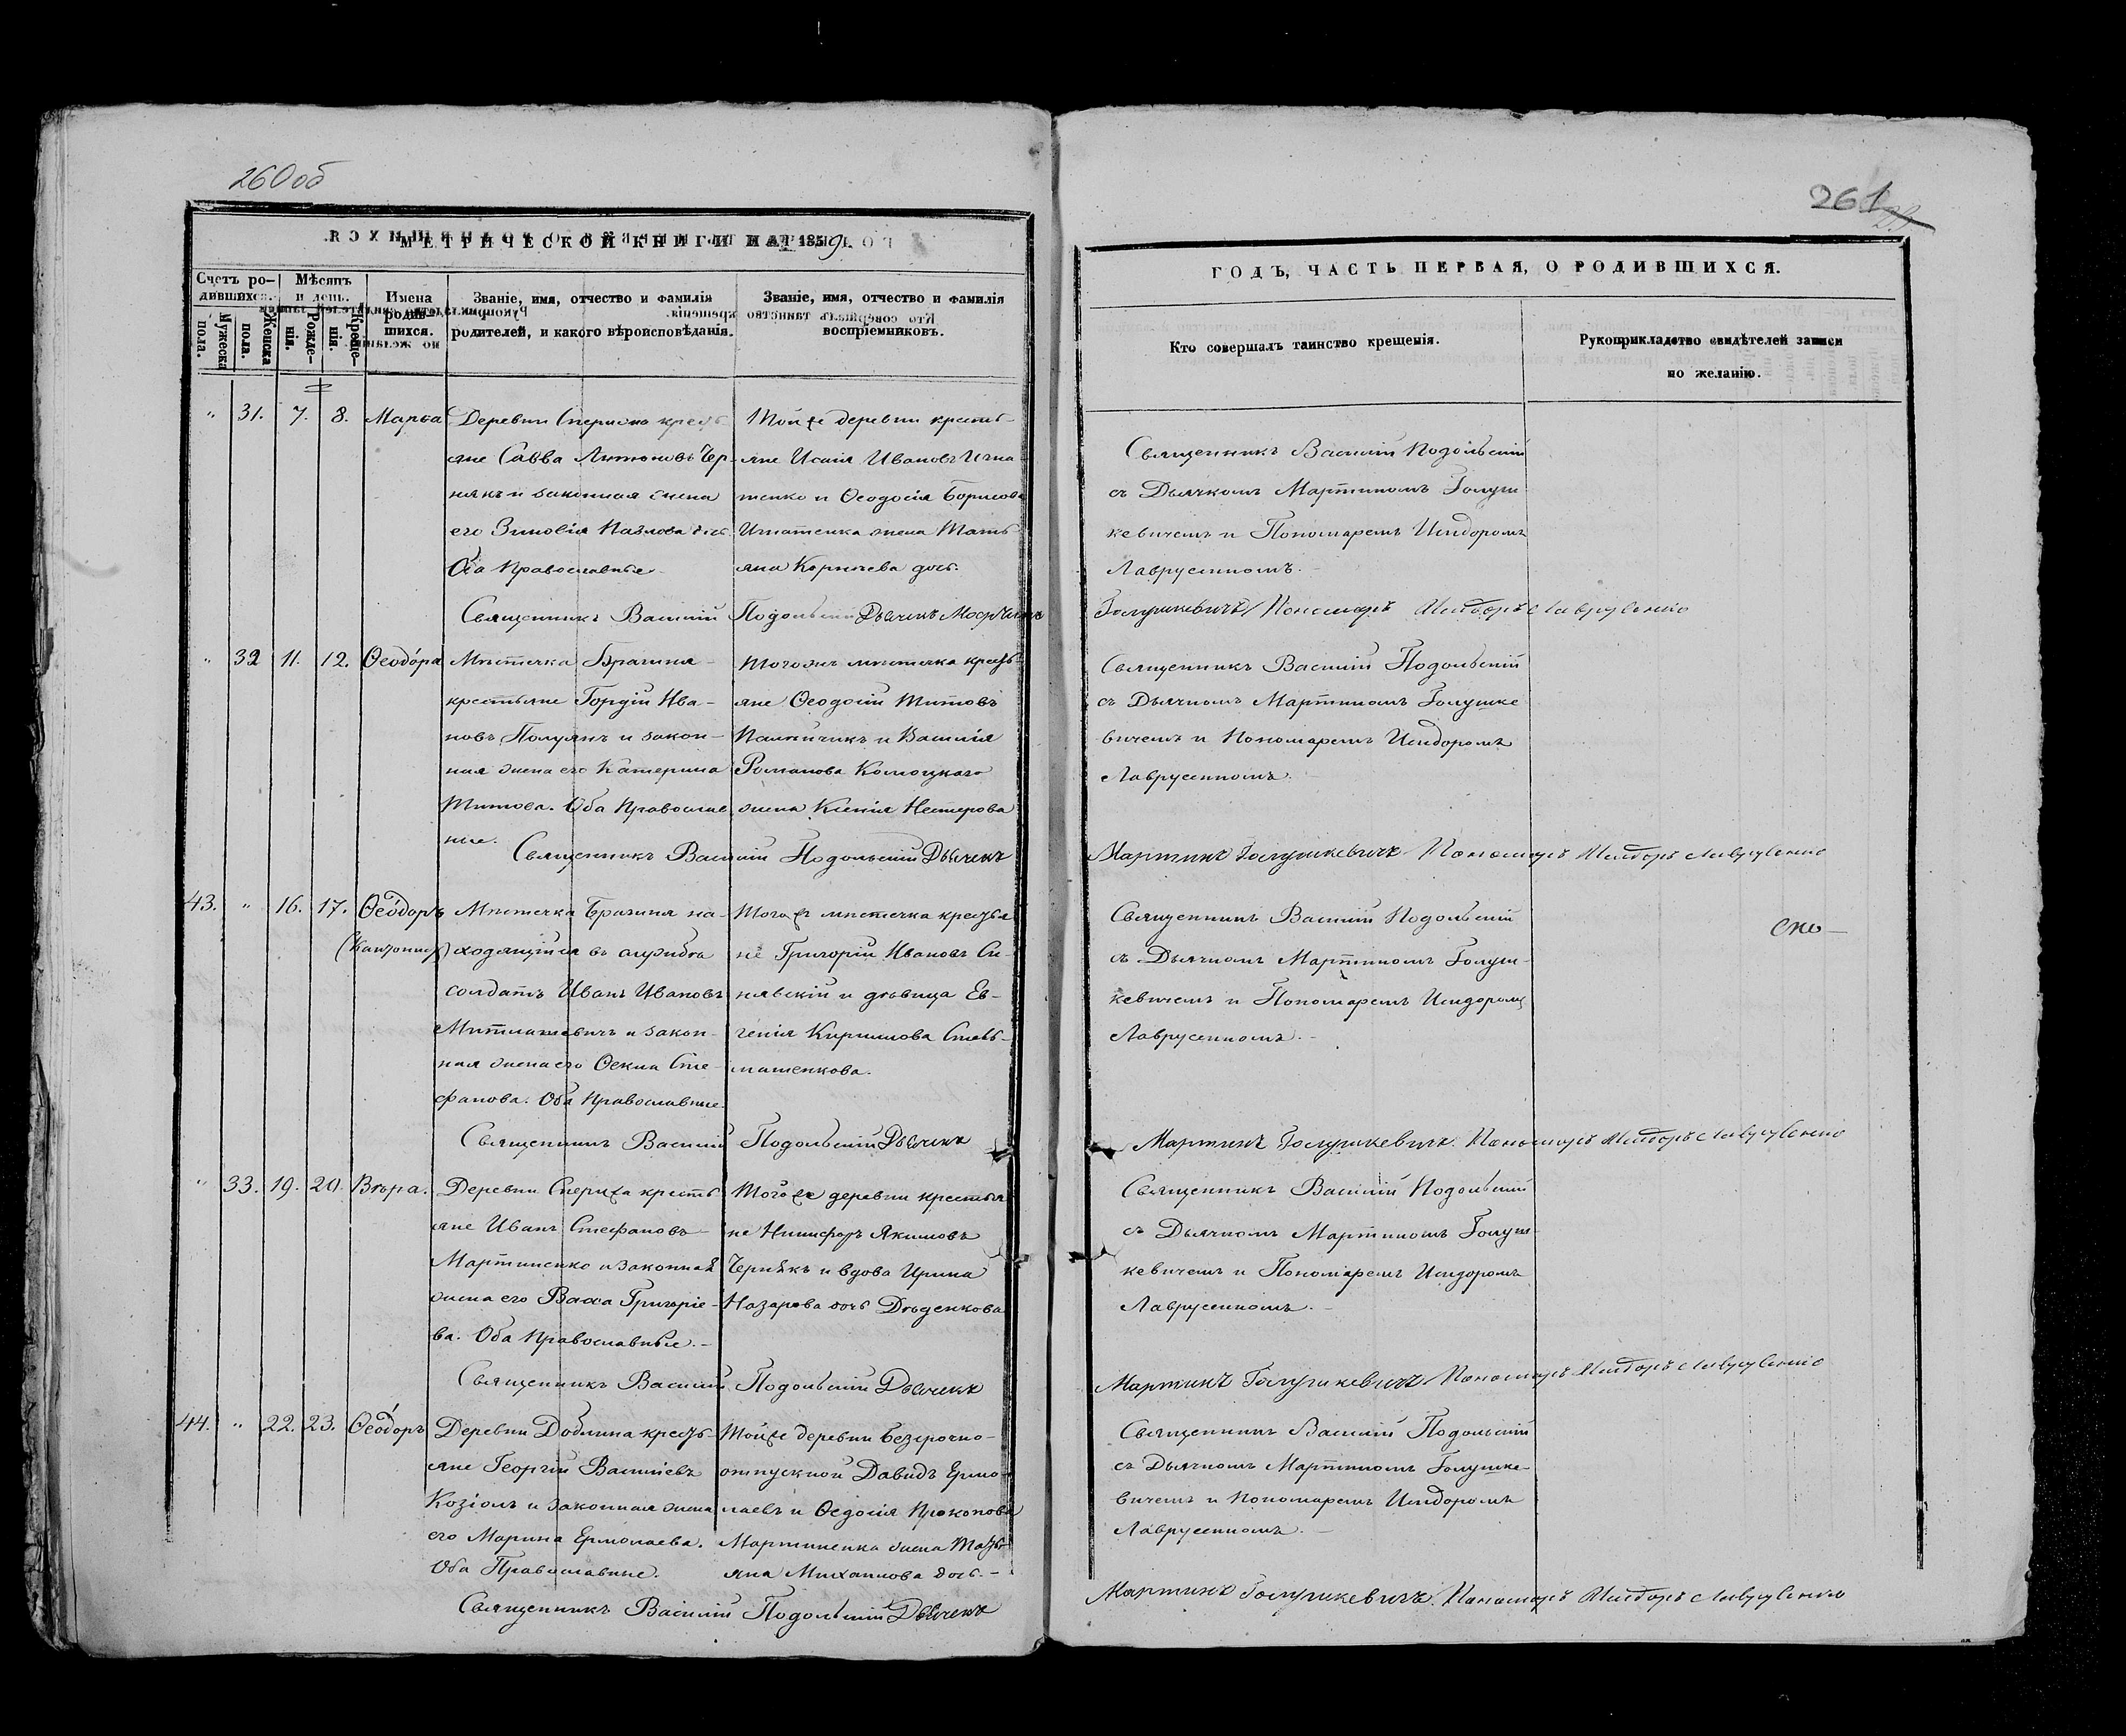 260 об
МЕТРИЧЕСКОЙ КНИГИ НА 1859.
Счетъ ро-
дившихся.
Мѣсяцъ
и день.
Мужеска
пола.
Женска
пола.
Рожде-
нія.
Креще-
нія.
Имена
родив-
шихся.
Званіе, имя, отчество и фамилія
родителей, и какого вѣроисповѣданія.
Званіе, имя, отчество и фамилія
воспріемниковъ.
" 31. 7. 8. Марѳа
Деревни крест
яне Савва Антоновъ Чер-
някъ и законная жена
его Зиновія Павлова
Оба Православные
Той же деревни кресть-
яне Исаія Ивановъ Игна-
тенко и Ѳеодосія Борисова
Игнатенка жена Тать-
яна дочь.
Священникъ Василій Подольскій Дьячекъ
" 32 11. 12. Ѳеодора
Мѣстечка Брагиня
крестьяне Гордій Ива-
новъ Полуянъ и закон-
ная жена его Катерина
Титова. Оба Православ
ные.
Тогожъ мѣстечка крест
яне Ѳеодосій Титовъ
и Василія
Романова
жена Ксенія Нестерова
Священникъ Василій Подольскій Дьячекъ
43. " 16. 17. Ѳеодоръ
(Кантонистъ)
Мѣстечка Брагиня на-
ходящійся въ службѣ
солдатъ Иванъ Ивановъ
и закон-
ная жена его Ѳекла Сте-
фанова. Оба Православные.
Того же мѣстечка крестья
не Григорій Ивановъ Си-
нявскій и дѣвица Ев-
генія Кирилова
Священникъ Василій Подольскій Дьячекъ
" 33. 19. 20. Вѣра.
Деревни кресть
яне Иванъ Стефановъ
Мартиненко и законная
жена его Васса Григоріе-
ва. Оба Православные.-
Того же деревни крестья
не Никифоръ Якимовъ
Чернякъ и вдова Ирина
Назарова дочь Дѣденкова
Священникъ Василій Подольскій Дьячекъ
44. " 22. 23. Ѳеодоръ
Деревни крест
яне Георгій Василіевъ
Козіолъ и законная жена
его Марина Ермолаева.
Оба Православные.
Той же деревни безсрочно-
отпускной Давидъ Ермо-
лаевъ и Ѳедосія Прокопова
Мартиненка жена Тать-
яна Михаилова дочь.-
Священникъ Василій Подольскій Дьячекъ
261
ГОДЪ, ЧАСТЬ ПЕРВАЯ, О РОДИВШИХСЯ.
Кто совершалъ таинство крещенія.
Рукоприкладство свидѣтелей записи
по желанію.
Священникъ Василій Подольскій
съ Дьячкомъ Мартиномъ Голуш-
кевичемъ и Пономаремъ Исидоромъ
Лаврусенкомъ.-
Голушкевичъ Пономарь Исидоръ Лаврусенко
Священникъ Василій Подольскій
съ Дьячкомъ Мартиномъ Голушке
вичемъ и Пономаремъ Исидоромъ
Лаврусенкомъ.-
Мартинъ Голушкевичъ Пономарь Исидоръ Лаврусенко
Священникъ Василій Подольскій
съ Дьячкомъ Мартиномъ Голуш-
кевичемъ и Пономаремъ Исидоромъ
Лаврусенкомъ.-
Мартинъ Голушкевичъ Пономарь Исидоръ Лаврусенко
Священникъ Василій Подольскій
съ Дьячкомъ Мартиномъ Голуш-
кевичемъ и Пономаремъ Исидоромъ
Лаврусенкомъ.-
Мартинъ Голушкевичъ Пономарь Исидоръ Лаврусенко
Священникъ Василій Подольскій
съ Дьячкомъ Мартиномъ Голушке-
вичемъ и Пономаремъ Исидоромъ
Лаврусенкомъ.-
Мартинъ Голушкевичъ Пономарь Исидоръ Лаврусенко